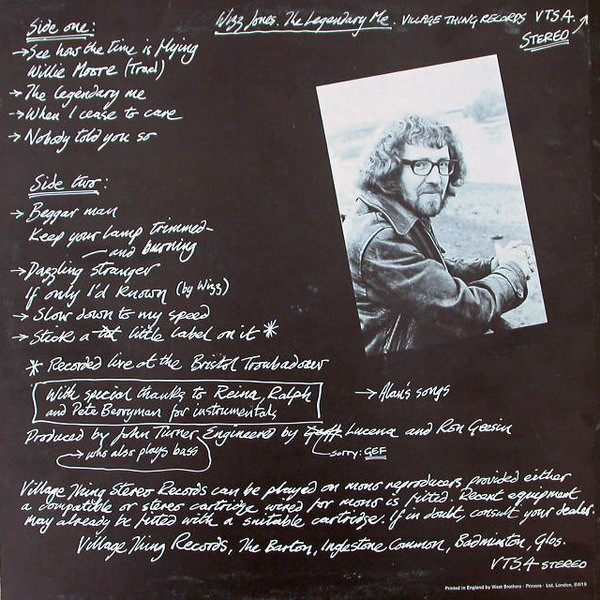 Wizz Jones. The Legendary Me. VILLAGE THING RECORDS VTS.4.
STEREO
Side one:
→ See how the time is flying
Willie Moore (Trad)
→ The legendary me
→ When I cease to care
→ Nobody told you so
Side two:
→ Beggar man
Keep your lamp trimmed-
-and burning
→ Dazzling stranger
If only I'd known (by Wizz)
→ Slow down to my speed
→ Stick a little label on it *
* Recorded live at the Bristol Troubadour
With special thanks to Reina, Ralph
and Pete Berryman for instrumentals
→ Alan's songs
Produced by John Turner Engineered by Geoff Lucena and Ron Geesin
→ who also plays bass
sorry: GEF
Village Thing Stereo Records can be played on mono reproducers provided either
a compatible or stereo cartridge wired for mono is fitted. Recent equipment
may already be fitted with a suitable cartridge. If in doubt, consult your dealer.
Village Thing Records, The Barton, Inglestone Common, Badminton, Glos.
VTS.4 STEREO
Printed in England by West Brothers · Printers · Ltd. London, SW19